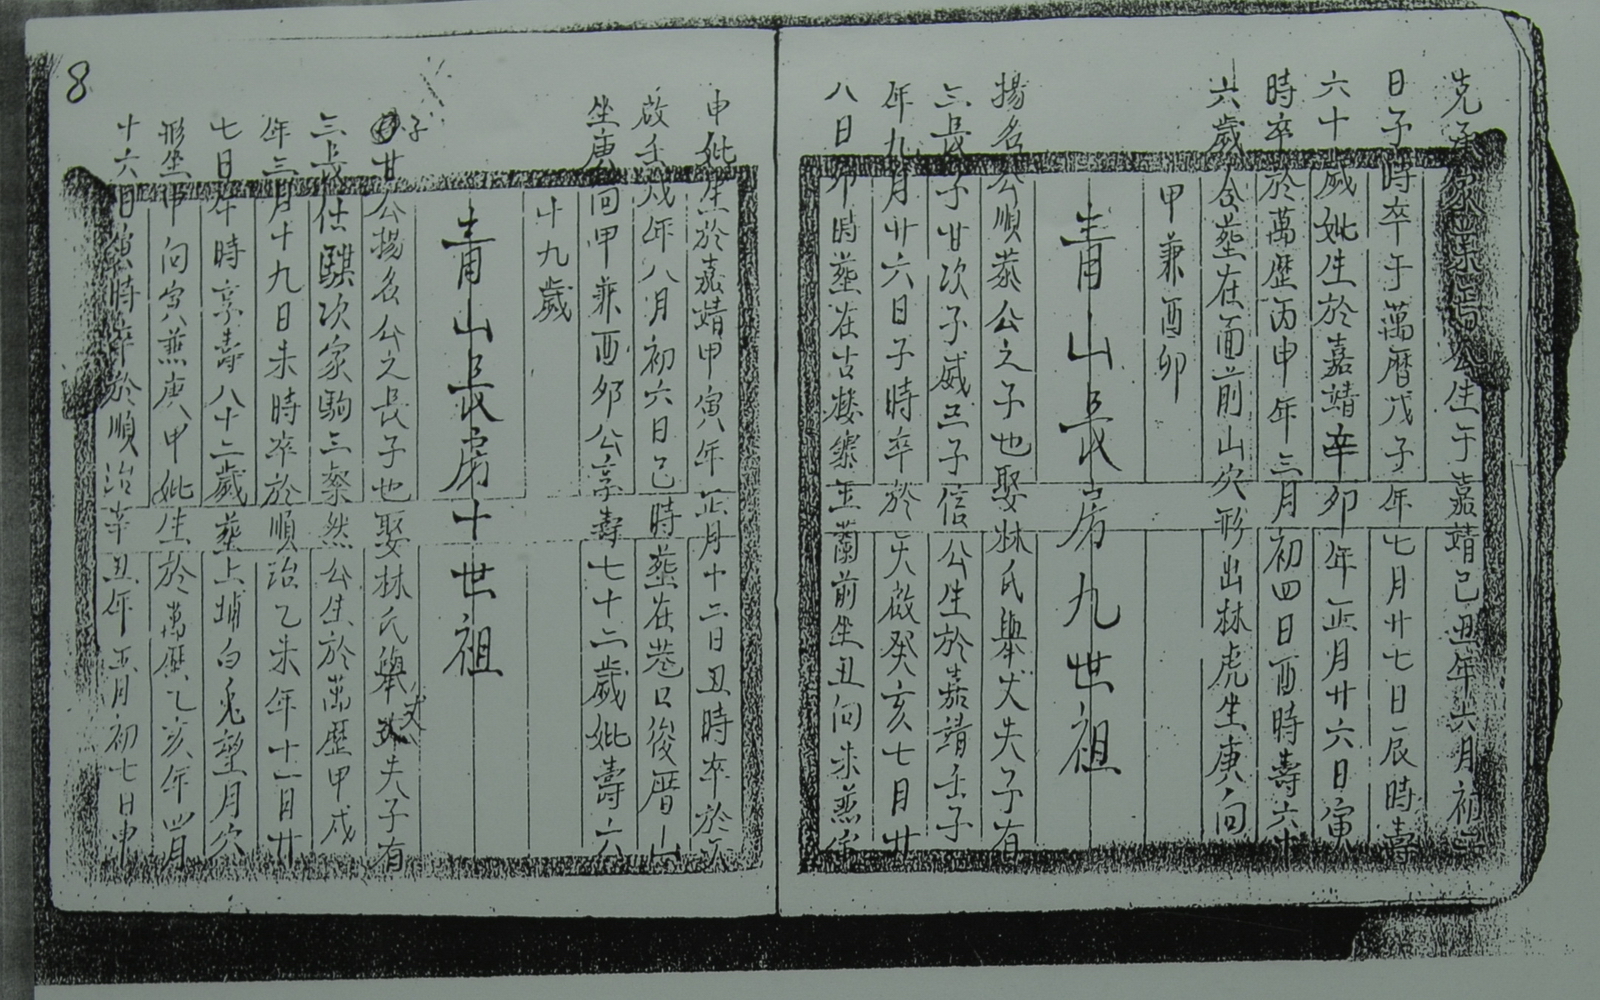 克承公生于嘉靖己丑年六月初三
日子時卒于萬曆戊子年七月廿七日辰時壽
六十歲妣生於嘉靖辛卯年正月廿六日寅
時卒於萬歷丙申年三月初四日酉時壽六十
六歲合塟在面前山穴形出林虎坐庚向
甲兼酉卯
青山長房九世祖
揚名公順恭公之子也娶林氏舉丈夫子有
三長子廿次子威三子信公生於嘉靖壬子
年九月廿六日子時卒於天啟癸亥七月廿
八日卯時塟在古樓寨玉蘭前坐丑向未兼
申妣生於嘉靖甲寅年正月十二日丑時卒於天
啟壬戌年八月初六日己時塟在巷口後厝山
坐庚向甲兼酉卯公享壽七十二歲妣壽六
十九歲
青山長房十世祖
子廿公揚名公之長子也娶林氏舉丈夫子有
三長仕騏次家駒三粲然公生於萬歷甲戌
年三月十九日未時卒於順治乙未年十一月廿
七日午時享壽八十二歲塟上埔白兔望月穴
形坐申向寅兼庚甲妣生於萬歷乙亥年四月
十六日寅時卒於順治辛丑年五月初七日申
8